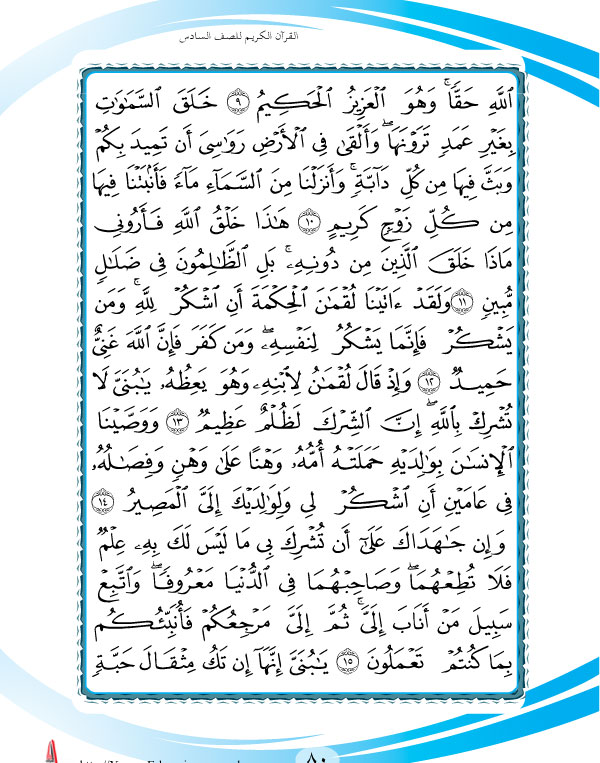 القرآن الكريم للصف السادس
ٱللَّهِ حَقًّاۚ وَهُوَ ٱلۡعَزِيزُ ٱلۡحَكِيمُ ٩ خَلَقَ ٱلسَّمَٰوَٰتِ
بِغَيۡرِ عَمَدٖ تَرَوۡنَهَاۖ وَأَلۡقَىٰ فِي ٱلۡأَرۡضِ رَوَٰسِيَ أَن تَمِيدَ بِكُمۡ
وَبَثَّ فِيهَا مِن كُلِّ دَآبَّةٖۚ وَأَنزَلۡنَا مِنَ ٱلسَّمَآءِ مَآءٗ فَأَنۢبَتۡنَا فِيهَا
مِن كُلِّ زَوۡجٖ كَرِيمٍ ١٠ هَٰذَا خَلۡقُ ٱللَّهِ فَأَرُونِي
مَاذَا خَلَقَ ٱلَّذِينَ مِن دُونِهِۦۚ بَلِ ٱلظَّٰلِمُونَ فِي ضَلَٰلٖ
مُّبِينٖ ١١ وَلَقَدۡ ءَاتَيۡنَا لُقۡمَٰنَ ٱلۡحِكۡمَةَ أَنِ ٱشۡكُرۡ لِلَّهِۚ وَمَن
يَشۡكُرۡ فَإِنَّمَا يَشۡكُرُ لِنَفۡسِهِۦۖ وَمَن كَفَرَ فَإِنَّ ٱللَّهَ غَنِيٌّ
حَمِيدٞ ١٢ وَإِذۡ قَالَ لُقۡمَٰنُ لِٱبۡنِهِۦ وَهُوَ يَعِظُهُۥ يَٰبُنَيَّ لَا
تُشۡرِكۡ بِٱللَّهِۖ إِنَّ ٱلشِّرۡكَ لَظُلۡمٌ عَظِيمٞ ١٣ وَوَصَّيۡنَا
ٱلۡإِنسَٰنَ بِوَٰلِدَيۡهِ حَمَلَتۡهُ أُمُّهُۥ وَهۡنًا عَلَىٰ وَهۡنٖ وَفِصَٰلُهُۥ
فِي عَامَيۡنِ أَنِ ٱشۡكُرۡ لِي وَلِوَٰلِدَيۡكَ إِلَيَّ ٱلۡمَصِيرُ ١٤
وَإِن جَٰهَدَاكَ عَلَىٰٓ أَن تُشۡرِكَ بِي مَا لَيۡسَ لَكَ بِهِۦ عِلۡمٞ
فَلَا تُطِعۡهُمَاۖ وَصَاحِبۡهُمَا فِي ٱلدُّنۡيَا مَعۡرُوفٗاۖ وَٱتَّبِعۡ
سَبِيلَ مَنۡ أَنَابَ إِلَيَّۚ ثُمَّ إِلَيَّ مَرۡجِعُكُمۡ فَأُنَبِّئُكُم
بِمَا كُنتُمۡ تَعۡمَلُونَ ١٥ يَٰبُنَيَّ إِنَّهَآ إِن تَكُ مِثۡقَالَ حَبَّةٖ
٨٠